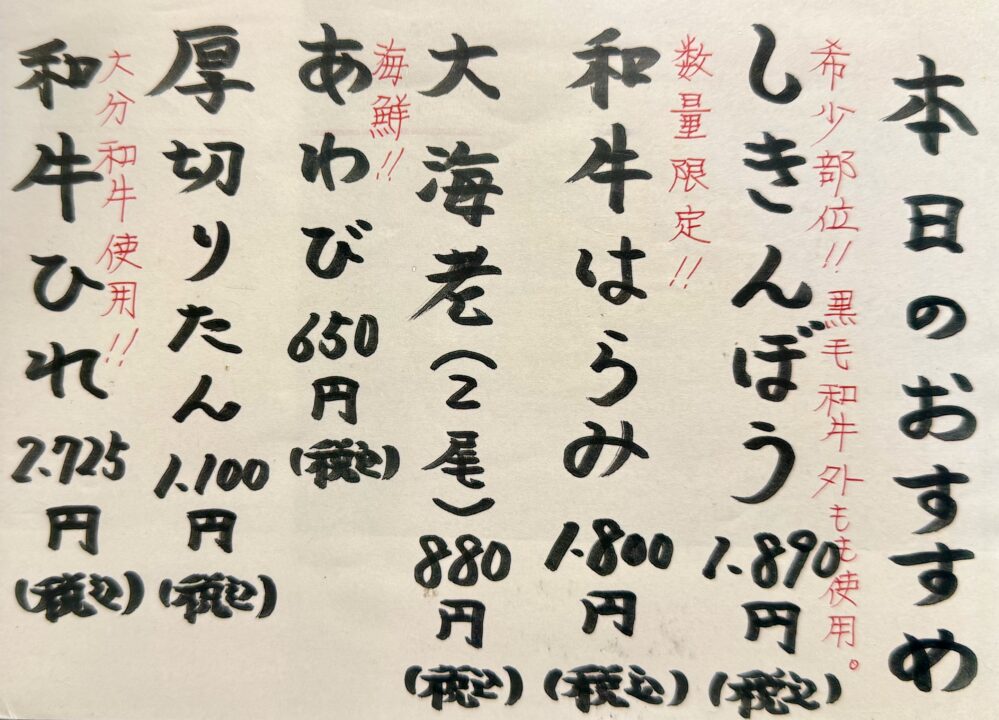 本日のおすすめ
希少部位!! 黒毛和牛外もも使用。
しきんぼう 1.890円(税込)
数量限定!!
和牛はらみ 1.800円(税込)
大海老(2尾) 880円(税込)
海鮮!!
あわび 650円(税込)
厚切りたん 1.100円(税込)
大分和牛使用!!
和牛ひれ 2.725円(税込)